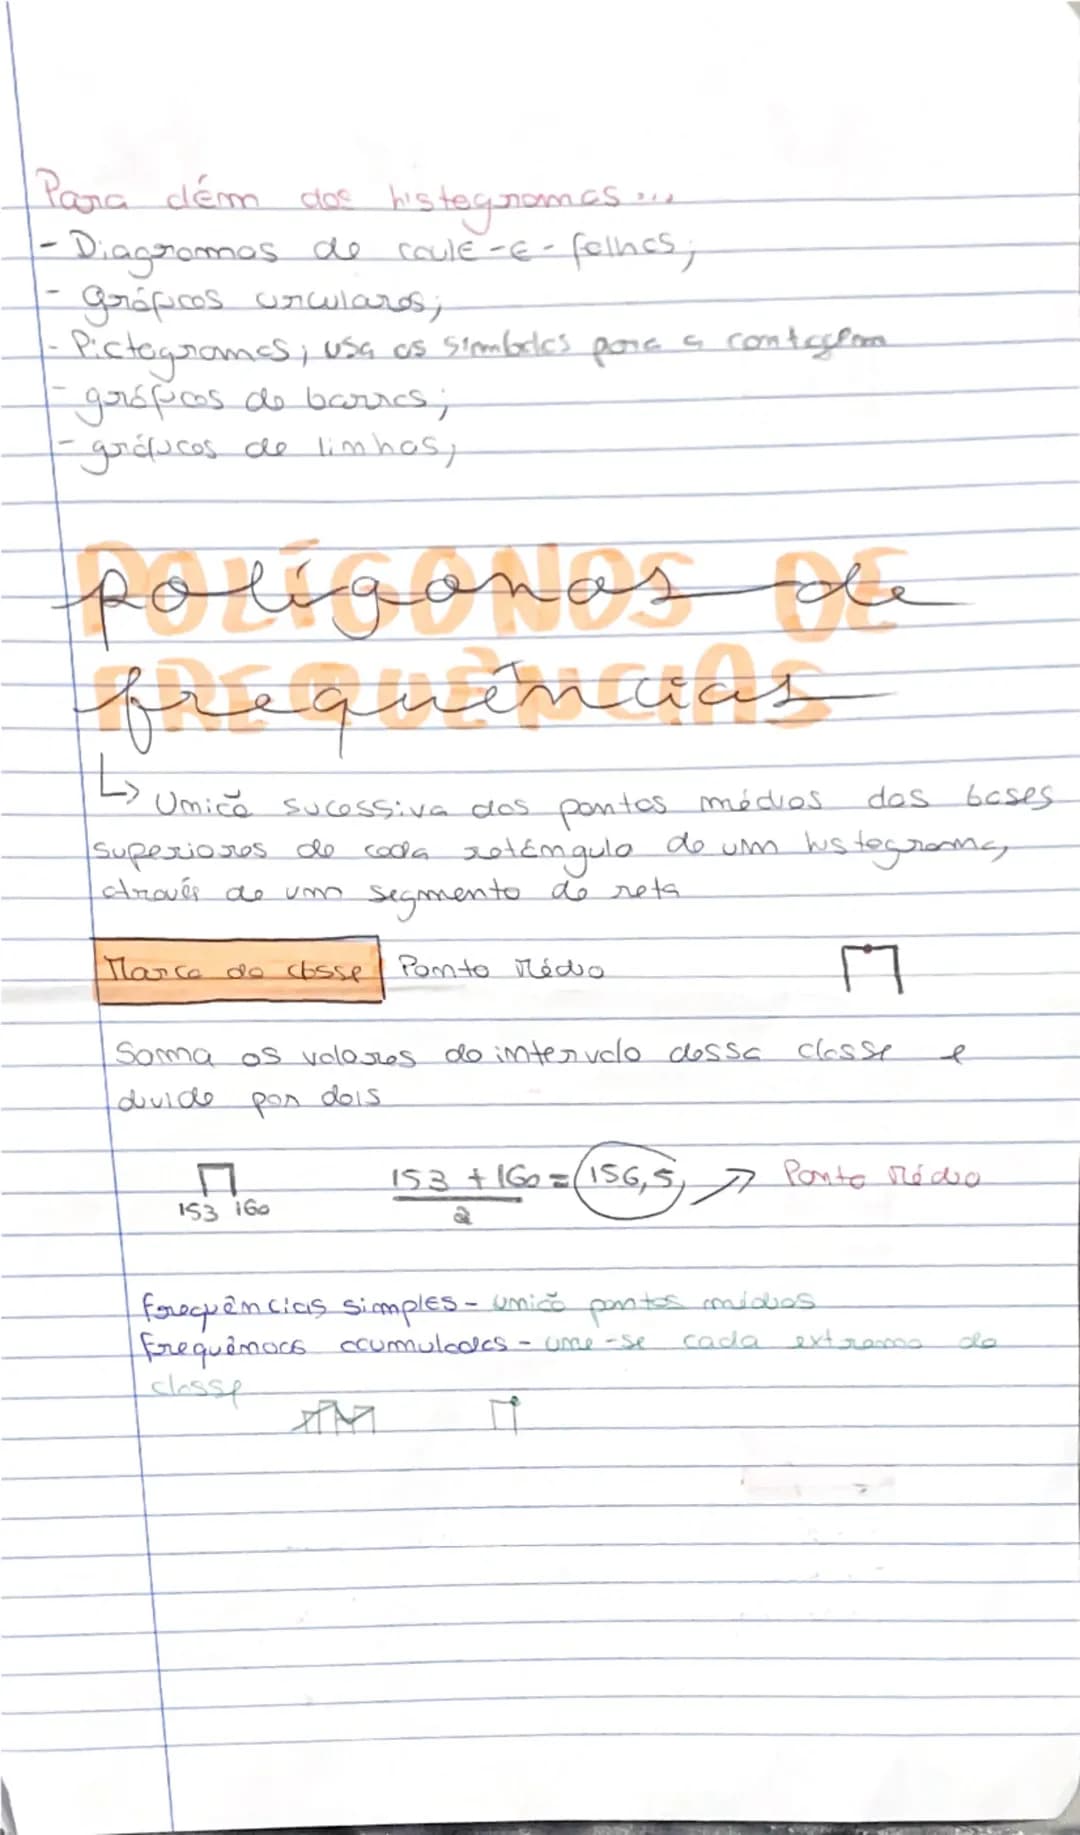 Para além dos histogramas...
- Diagramas de caule-e-folhas;
- gráficos circulares;
- Pictogramas; usa os símbolos para a contagem
- gráficos de barras;
- gráficos de linhas;
POLÍGONOS DE
polígonos de
FREQUÊNCIAS
frequências
↳ União sucessiva dos pontos médios das bases
superiores de cada retângulo de um histograma,
através de um segmento de reta
Marca da classe Ponto Médio
Soma os valores do intervalo dessa classe e
divide por dois
153 + 160 = 156,5 → Ponto Médio
2
153 160
Frequências simples - união pontos médios
Frequências acumuladas - une-se cada extremo da
classe